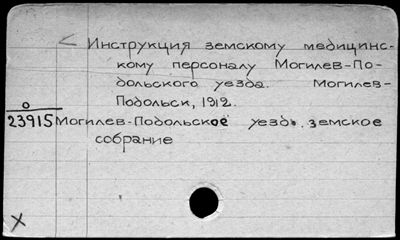 < Инструкция земскому медицинс-
кому персоналу Могилев-По-
дольского уезда. Могилев-
Подольск, 1912.
0
23915 Могилев-Подольское уездн. земское
собрание
X